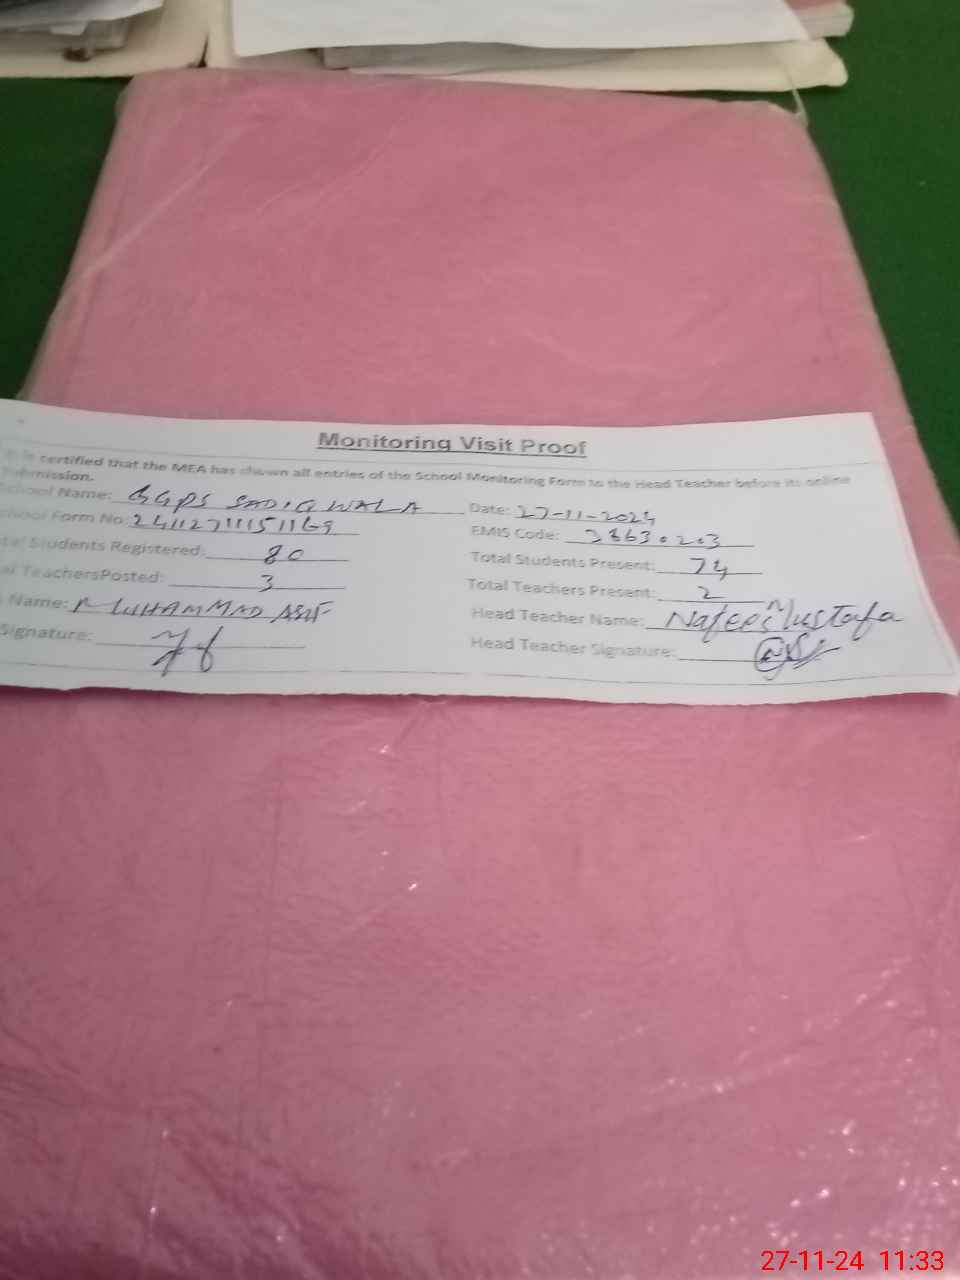 Monitoring Visit Proof
It is certified that the MEA has shown all entries of the School Monitoring Form to the Head Teacher before its online
submission.
School Name: GGPS SADIQ WALA Date: 27-11-2024
School Form No: EMIS Code: 38630203
Total Students Registered: 80 Total Students Present: 74
Total TeachersPosted: 3 Total Teachers Present: 2
Name: MUHAMMAD ASIF Head Teacher Name: Nafees Mustafa
Signature: Head Teacher Signature:
27-11-24 11:33